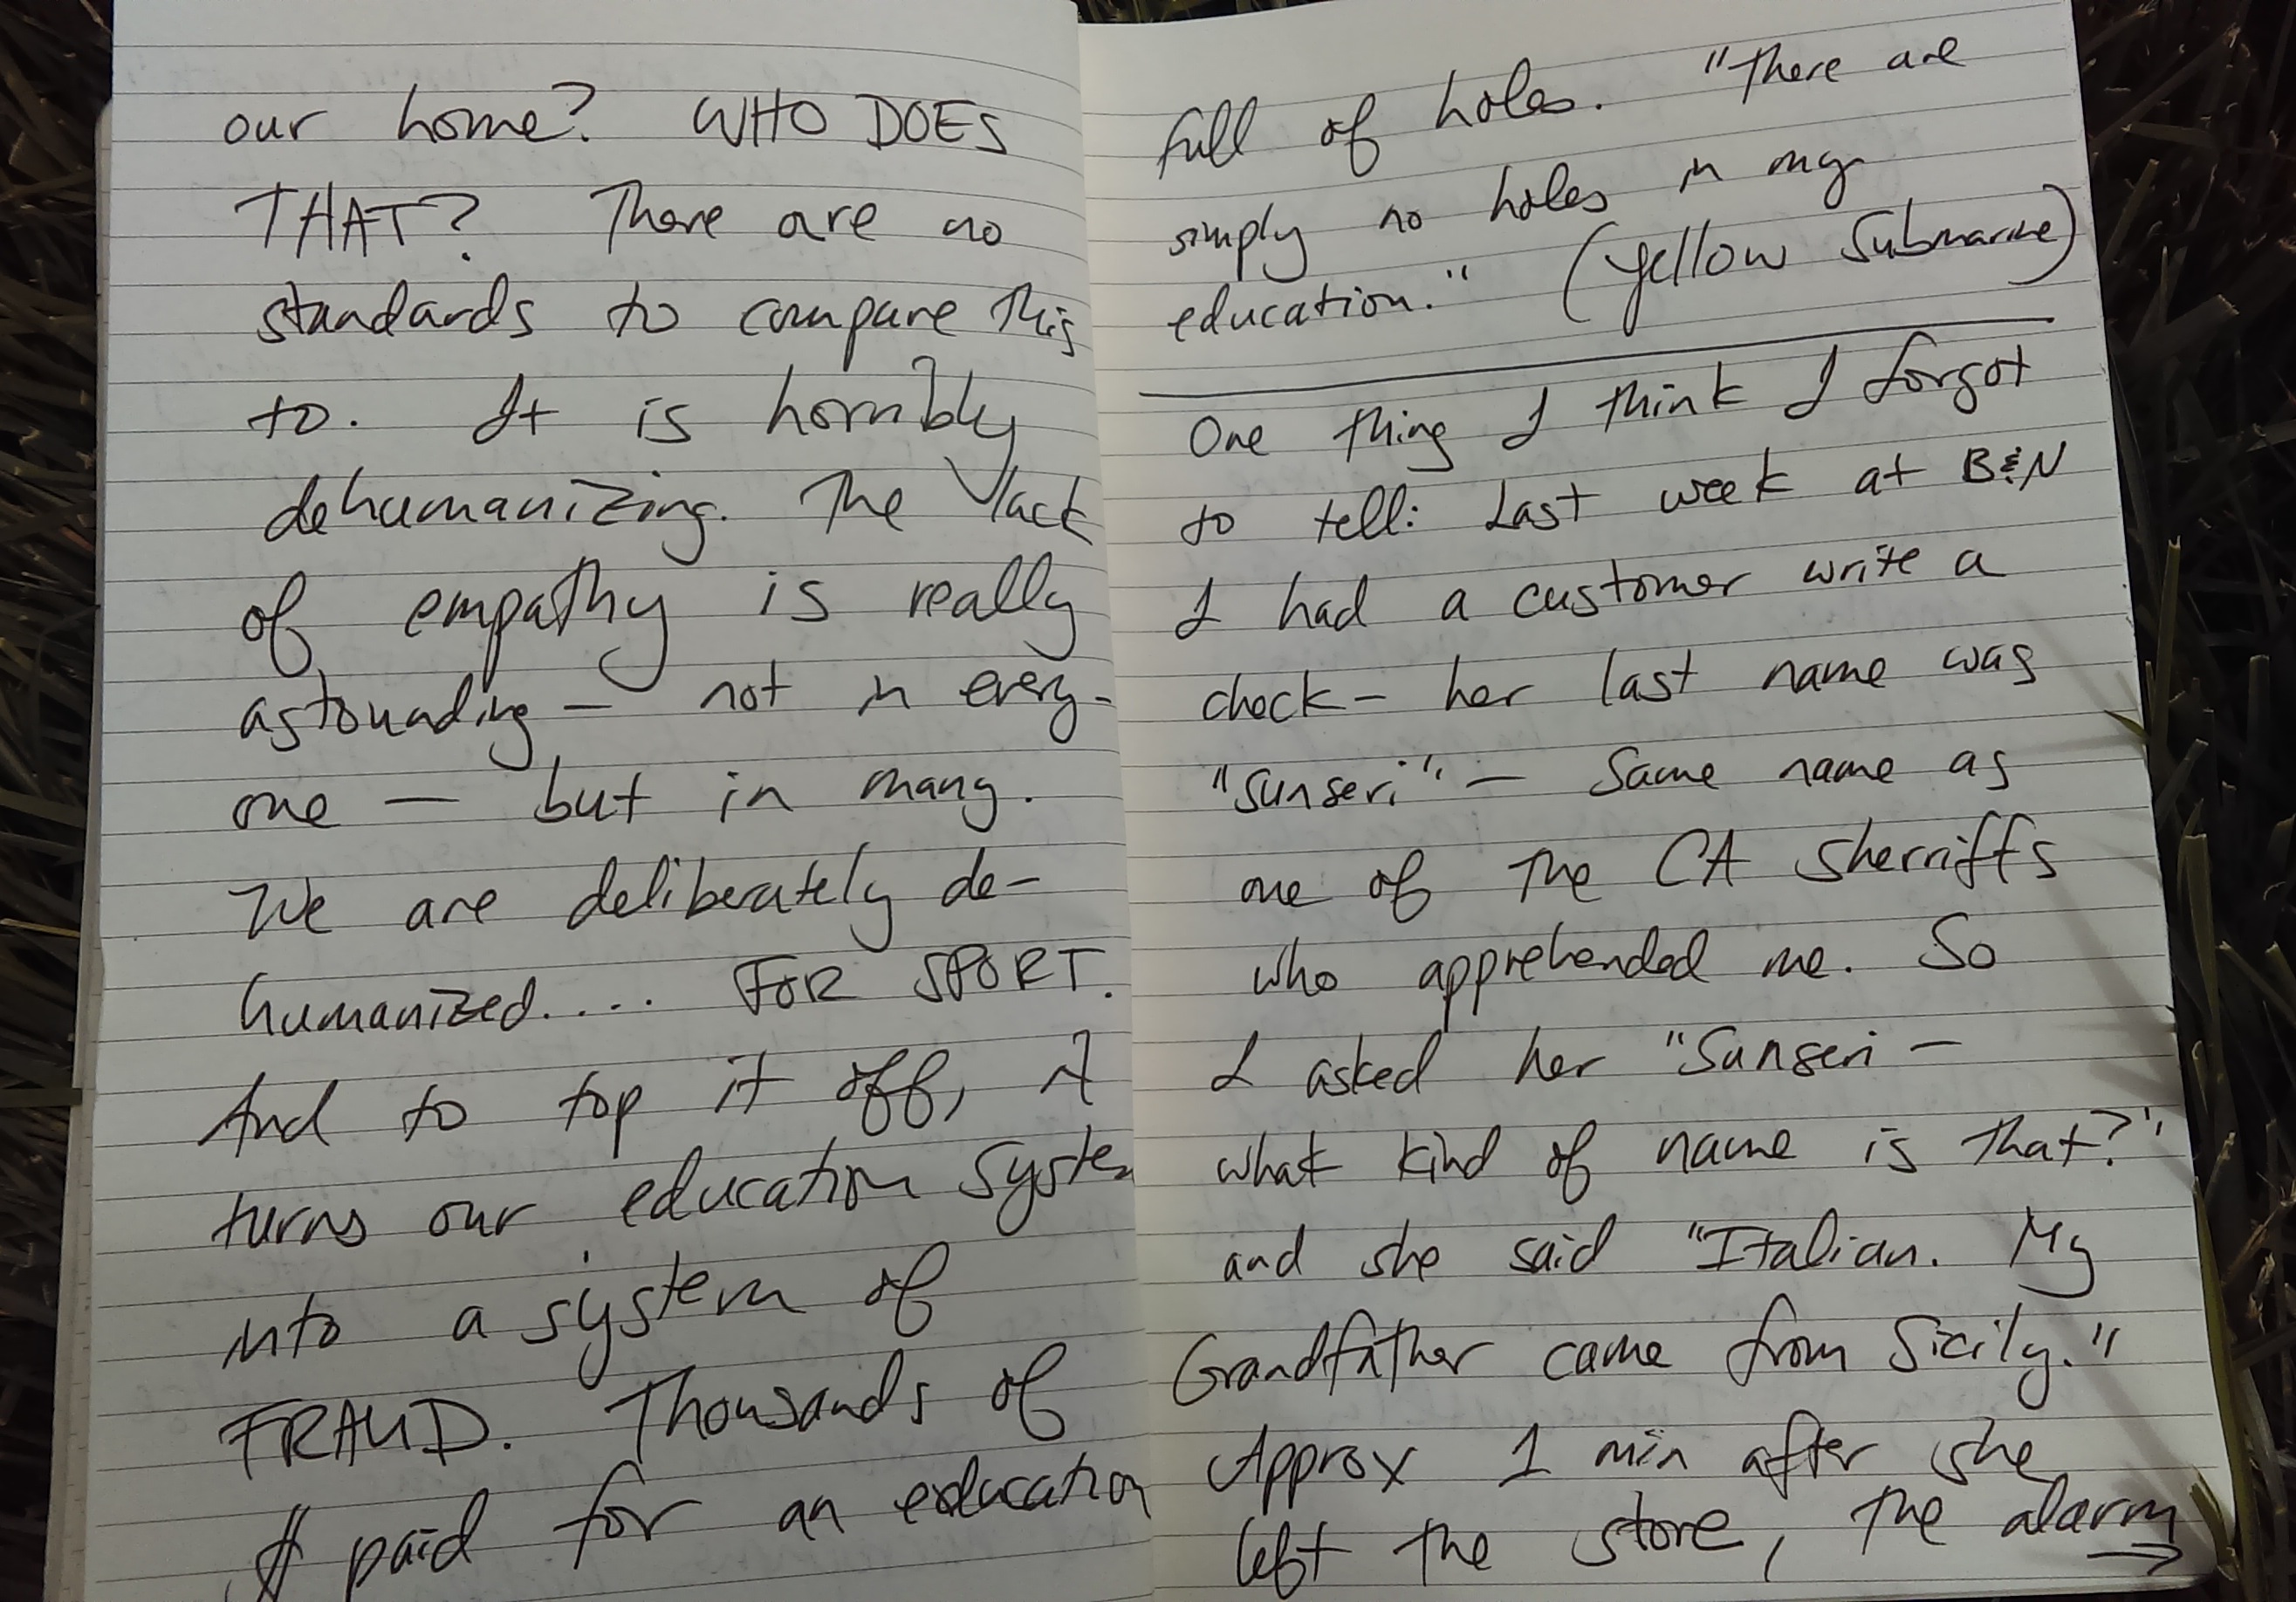 our home? WHO DOES
THAT? There are no
standards to compare this
to. It is horribly
dehumanizing. The lack
of empathy is really
astounding — not in every-
one — but in many.
We are deliberately de-
humanized.... FOR SPORT.
And to top it off, it
turns our education system
into a system of
FRAUD. Thousands of
$ paid for an education
full of holes. "There are
simply no holes in my
education." (Yellow Submarine)
One thing I think I forgot
to tell: Last week at B&N
I had a customer write a
check — her last name was
"Sunseri" — Same name as
one of the CA Sherriffs
who apprehended me. So
I asked her "Sunseri —
what kind of name is that?"
and she said "Italian. My
Grandfather came from Sicily."
Approx 1 min after she
left the store, the alarm
→